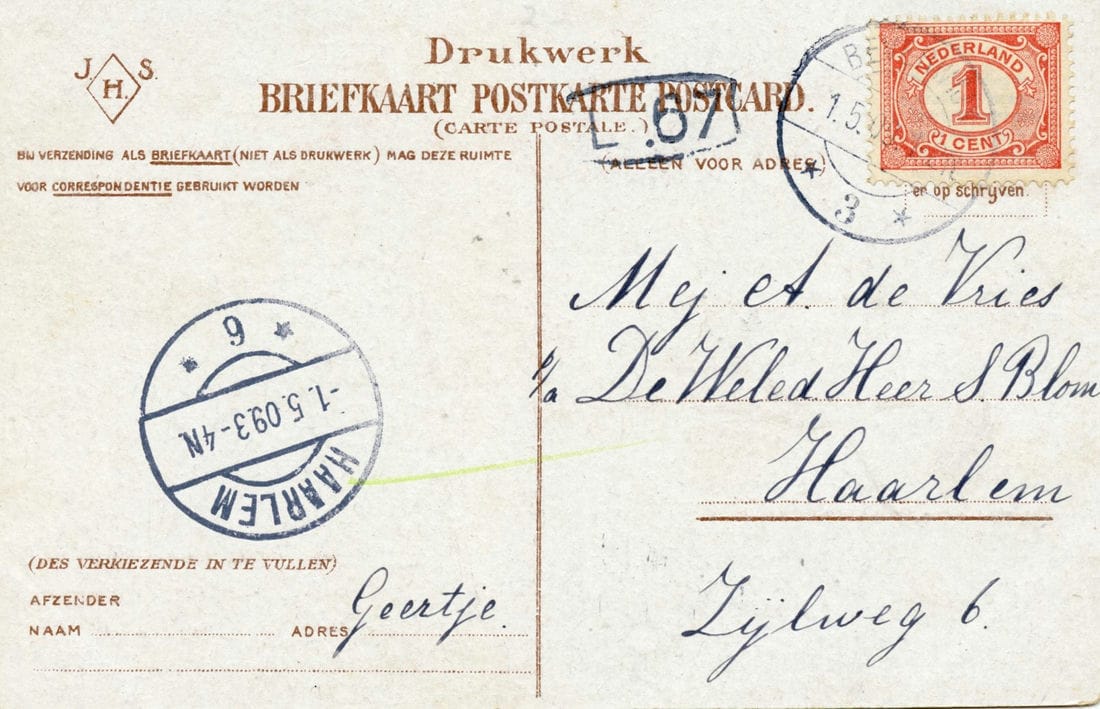 J. H. S.
Drukwerk
BRIEFKAART POSTKARTE POSTCARD.
(CARTE POSTALE.)
.67
BIJ VERZENDING ALS BRIEFKAART (NIET ALS DRUKWERK) MAG DEZE RUIMTE
VOOR CORRESPONDENTIE GEBRUIKT WORDEN
(ALLEEN VOOR ADRES)
NEDERLAND
1
1 CENT
1.5.
* 3 *
er op schrijven.
Mej A. de Vries
p/a De Weled Heer S Blom
Haarlem
Zijlweg 6.
* 6 *
-1.5.09.3-4N
HAARLEM
(DES VERKIEZENDE IN TE VULLEN)
AFZENDER
NAAM ADRES Geertje.